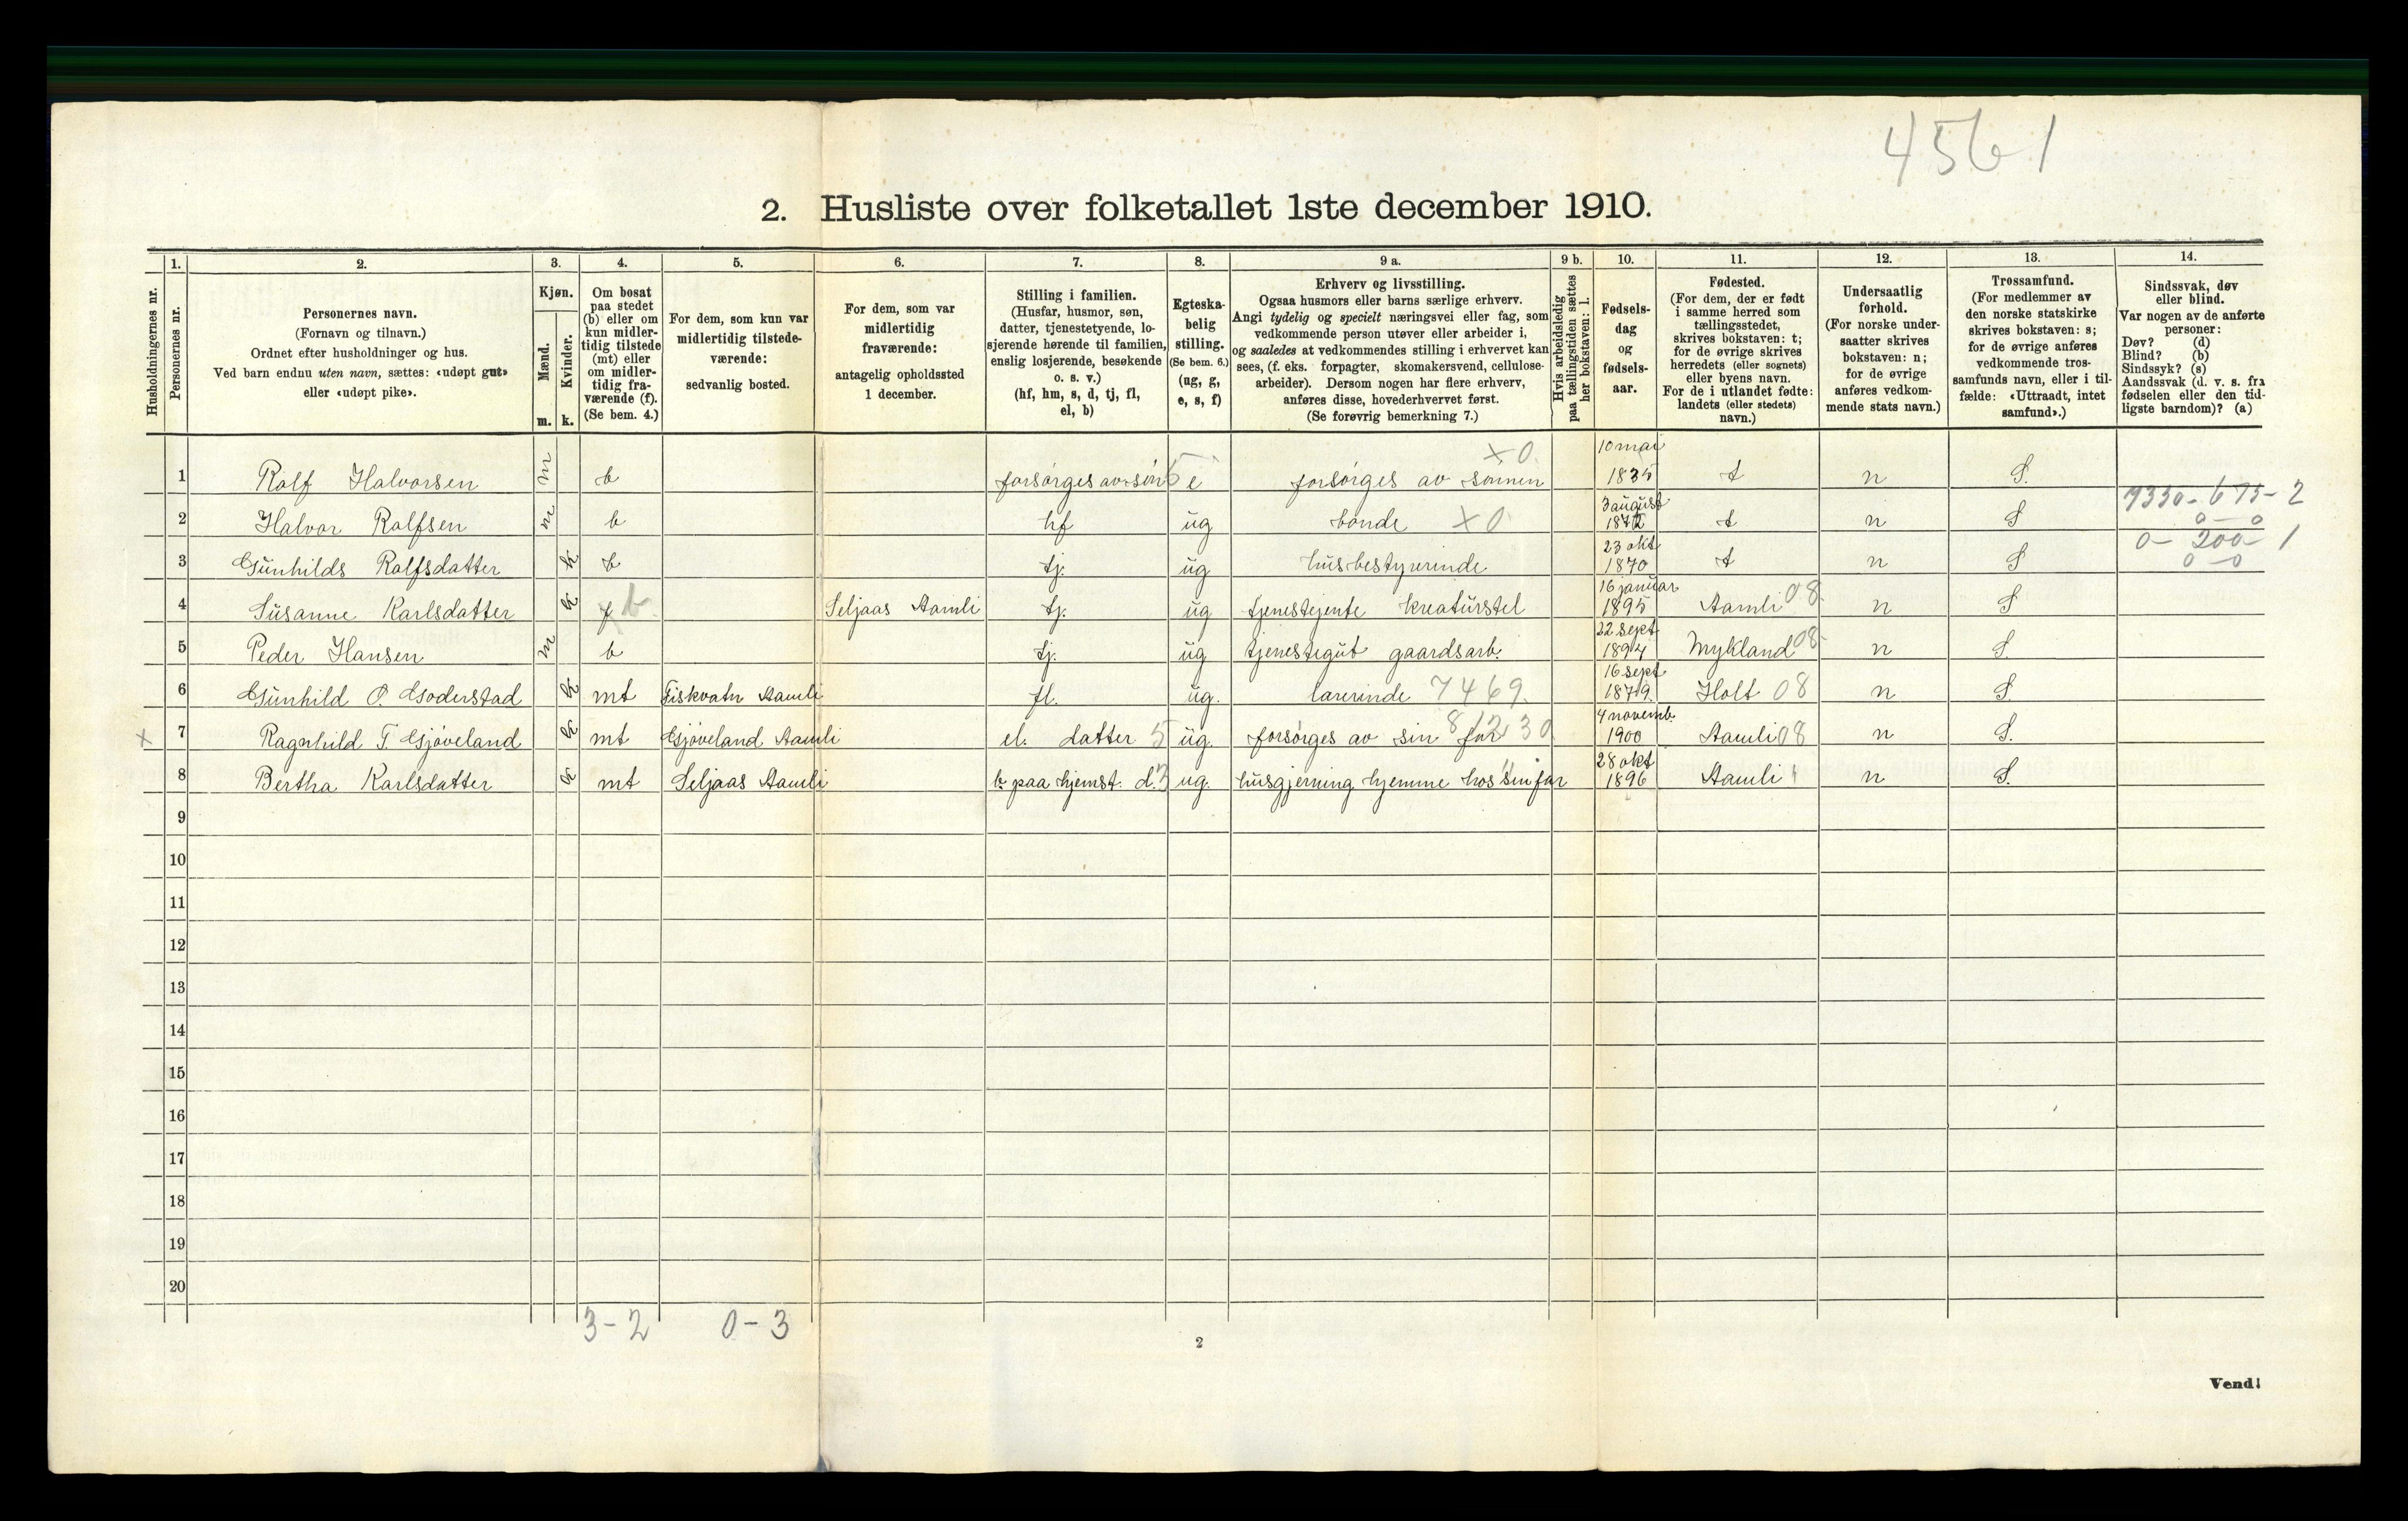 4561
2. Husliste over folketallet 1ste december 1910.
Husholdningernes nr.
1.
Personernes nr.
2.
Personernes navn.
(Fornavn og tilnavn.)
Ordnet efter husholdninger og hus.
Ved barn endnu uten navn, sættes: «udøpt gut»
eller «udøpt pike».
3.
Kjøn.
Mænd.
Kvinder.
m. k.
4.
Om bosat
paa stedet
(b) eller om
kun midler-
tidig tilstede
(mt) eller
om midler-
tidig fra-
værende (f).
(Se bem. 4.)
5.
For dem, som kun var
midlertidig tilstede-
værende:
sedvanlig bosted.
6.
For dem, som var
midlertidig
fraværende:
antagelig opholdssted
1 december.
7.
Stilling i familien.
(Husfar, husmor, søn,
datter, tjenestetyende, lo-
sjerende hørende til familien,
enslig losjerende, besøkende
o. s. v.)
(hf, hm, s, d, tj, fl,
el, b)
8.
Egteska-
belig
stilling.
(Se bem. 6.)
(ug, g,
e, s, f)
9 a.
Erhverv og livsstilling.
Ogsaa husmors eller barns særlige erhverv.
Angi tydelig og specielt næringsvei eller fag, som
vedkommende person utøver eller arbeider i,
og saaledes at vedkommendes stilling i erhvervet kan
sees, (f. eks. forpagter, skomakersvend, cellulose-
arbeider). Dersom nogen har flere erhverv,
anføres disse, hovederhvervet først.
(Se forøvrig bemerkning 7.)
9 b.
Hvis arbeidsledig
paa tællingstiden sættes
her bokstaven: l.
10.
Fødsels-
dag
og
fødsels-
aar.
11.
Fødested.
(For dem, der er født
i samme herred som
tællingsstedet,
skrives bokstaven: t;
for de øvrige skrives
herredets (eller sognets)
eller byens navn.
For de i utlandet fødte:
landets (eller stedets)
navn.)
12.
Undersaatlig
forhold.
(For norske under-
saatter skrives
bokstaven: n;
for de øvrige
anføres vedkom-
mende stats navn.)
13.
Trossamfund.
(For medlemmer av
den norske statskirke
skrives bokstaven: s;
for de øvrige anføres
vedkommende tros-
samfunds navn, eller i til-
fælde: «Uttraadt, intet
samfund».)
14.
Sindssvak, døv
eller blind.
Var nogen av de anførte
personer:
Døv? (d)
Blind? (b)
Sindssyk? (s)
Aandssvak (d. v. s. fra
fødselen eller den tid-
ligste barndom)? (a)
1 Rolf Halvorsen m b forsørges av søn 5 e forsørges av sønnen x0 10 mai 1835 t n S.
2 Halvor Rolfsen m b hf ug bonde x0 3 august 1872 t n S 7330-675-2 0-0
3 Gunhilds Rolfsdatter k b tj. ug husbestyrerinde 23 okt 1870 t n S 0-200-1 0-0
4 Susanne Karlsdatter k f b Seljaas Aamli tj. ug tjenestejente kreaturstel 16 januar 1895 Aamli 08 n S
5 Peder Hansen m b tj. ug tjenestegut gaardsarb. 22 sept 1894 Mykland 08 n S.
6 Gunhild O. Goderstad k mt Fiskvatn Aamli fl. ug. lærerinde 7469. 16 sept 1879. Holt 08 n S.
x 7 Ragnhild T. Gjøveland k mt Gjøveland Aamli el. datter 5 ug. forsørges av sin far 4 novemb. 1900 Aamli 08 n S.
8 Bertha Karlsdatter k mt Seljaas Aamli b. paa hjemst: d. 3 ug. husgjerning hjemme hos sin far 28 okt 1896 Aamli n S.
9
10
11
12
13
14
15
16
17
18
19
20
3-2 0-3
2
Vend!